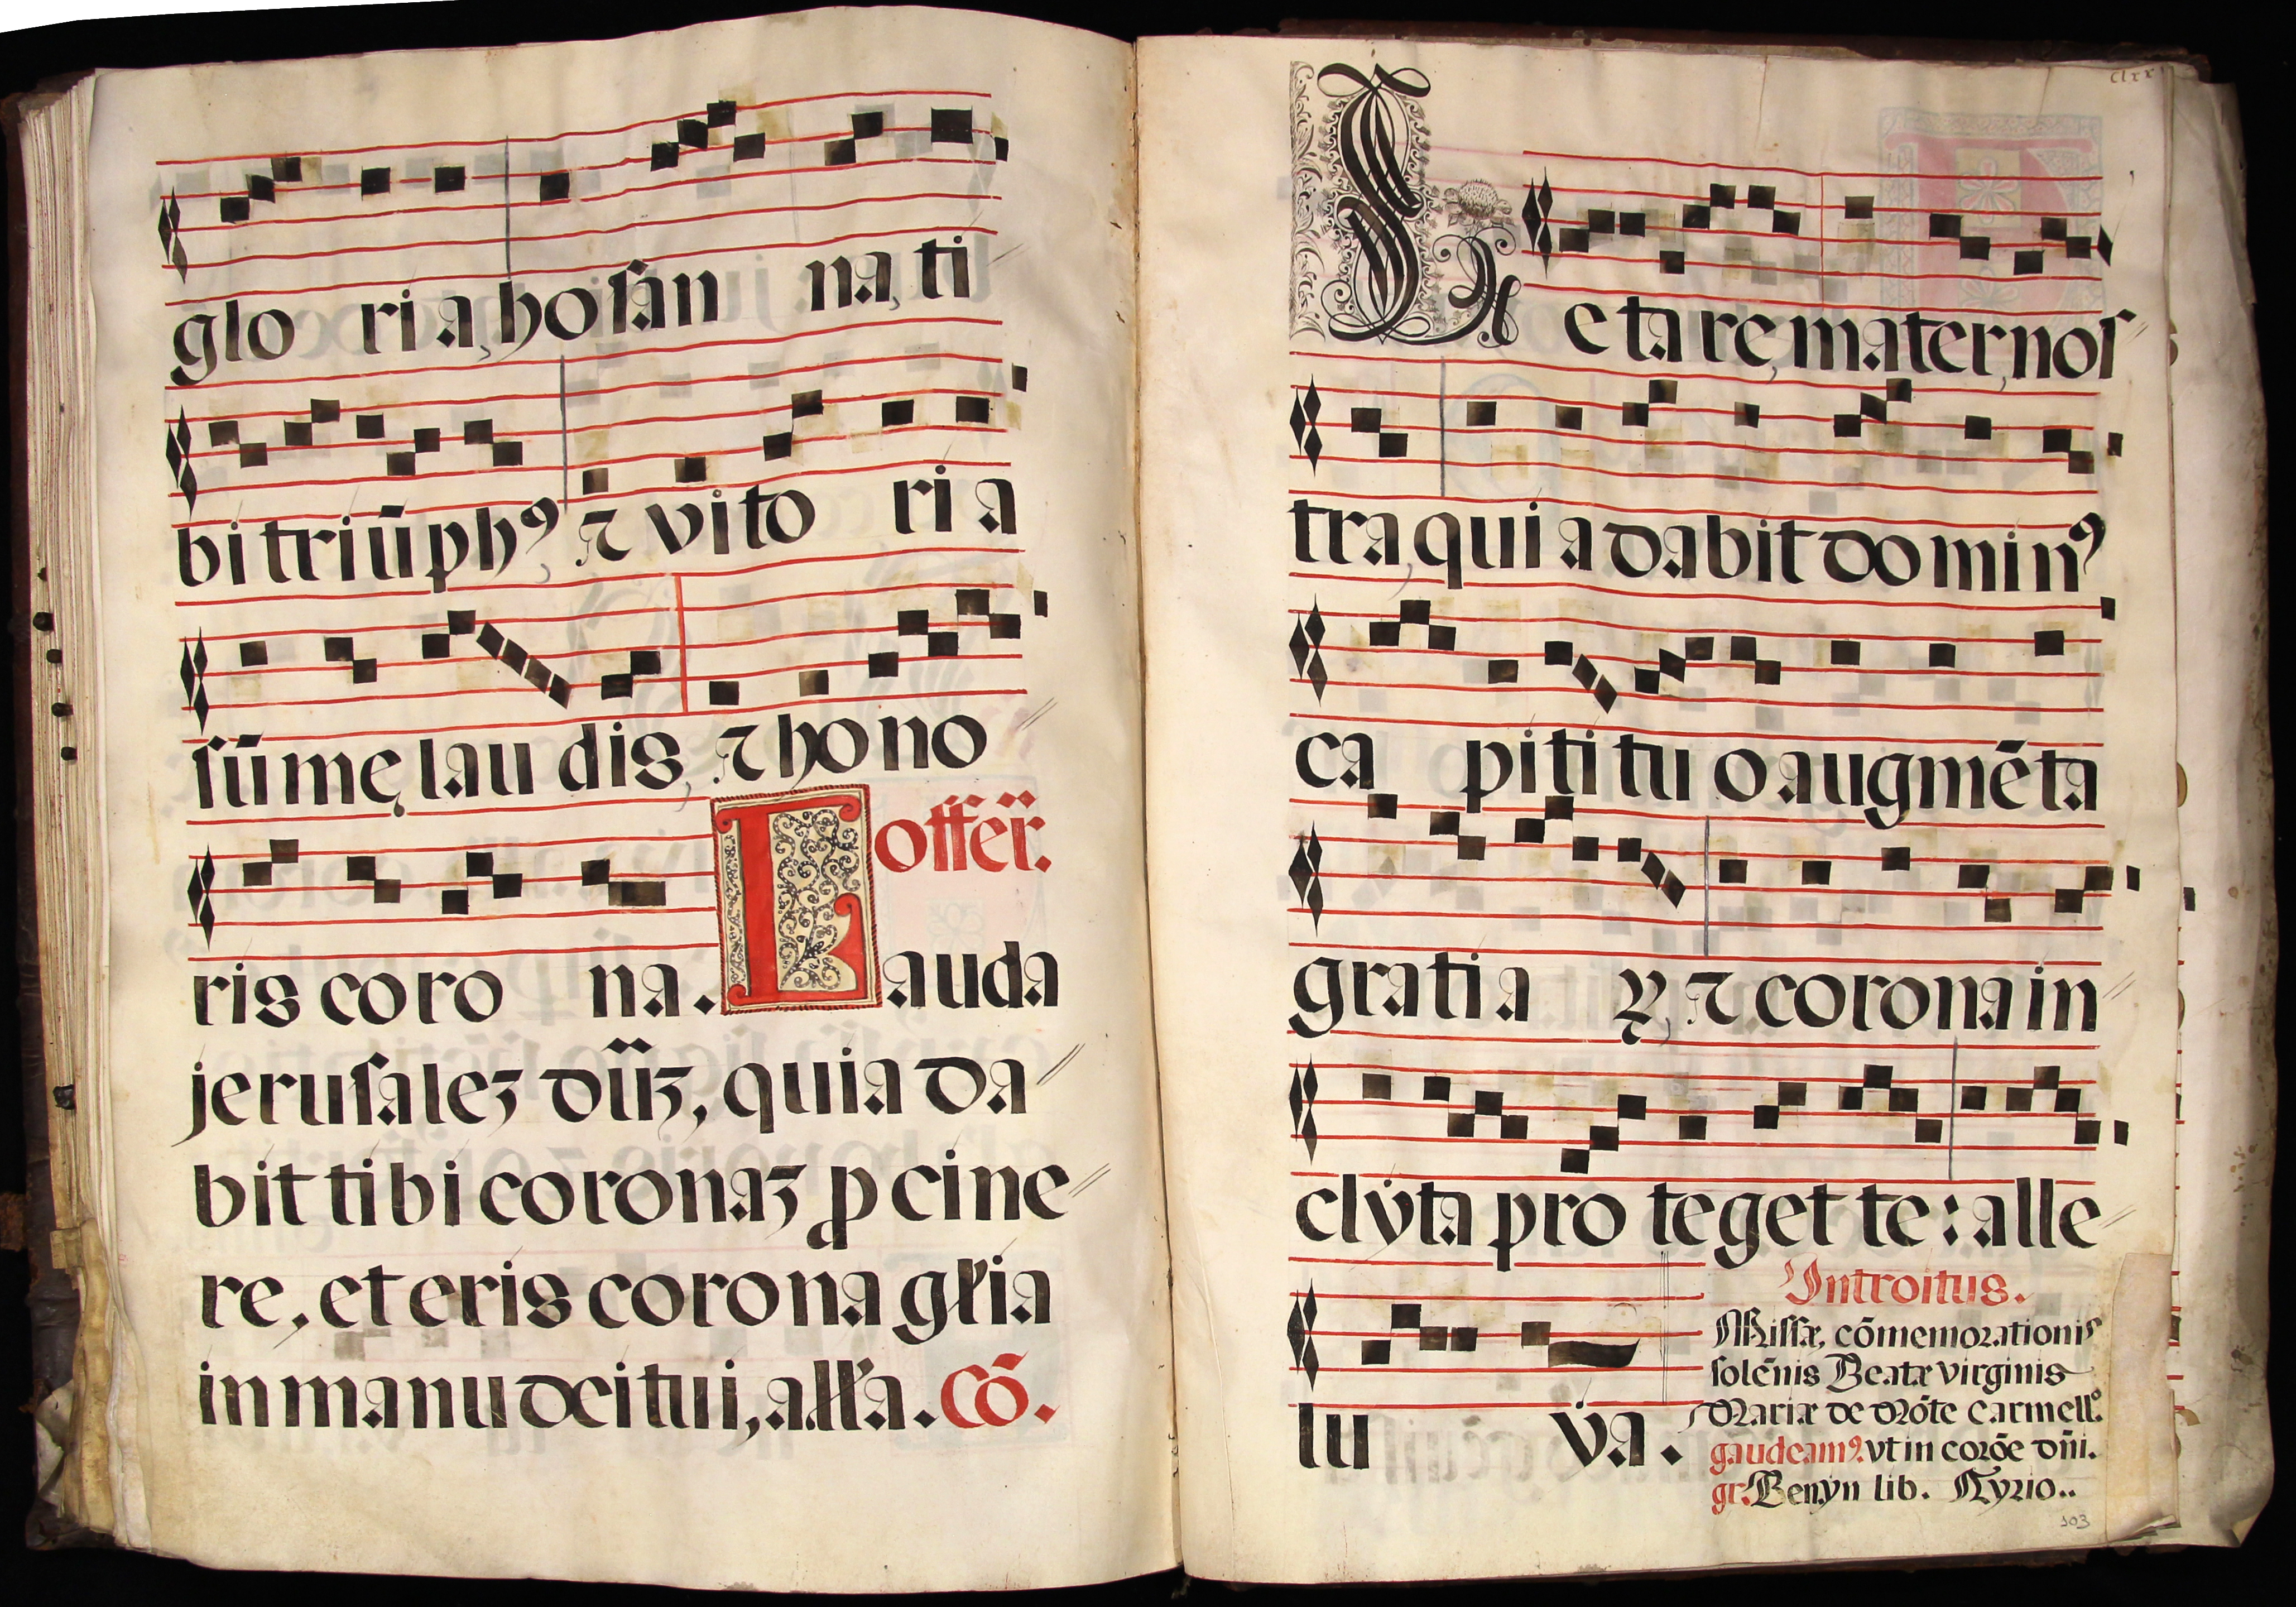 glo ria, hosan na, ti
bi triūphꝰ, ⁊ vito ria
sūmę laudis, ⁊ hono
offer̄.
ris coro na. Lauda
jerusaleꝫ dūꝫ, quia da
bit tibi coronaꝫ ꝑ cine
re, et eris corona gl̄ia
in manu dei tui, all̄a. Cō.
clxx
Læetare, mater, nos
tra, quia dabit dominꝰ
ca piti tuo augmēta
gratia ꝝ, ⁊ corona in
clẏta proteget te: alle
Introitus.
Missæ, cōmemorationis
solēnis Beatæ virginis
Mariæ de Mōte Carmellº.
lu ẏa.
gaudeamꝰ. vt in corōe dn̄i.
gr. Benyn lib. Kyrio..
103